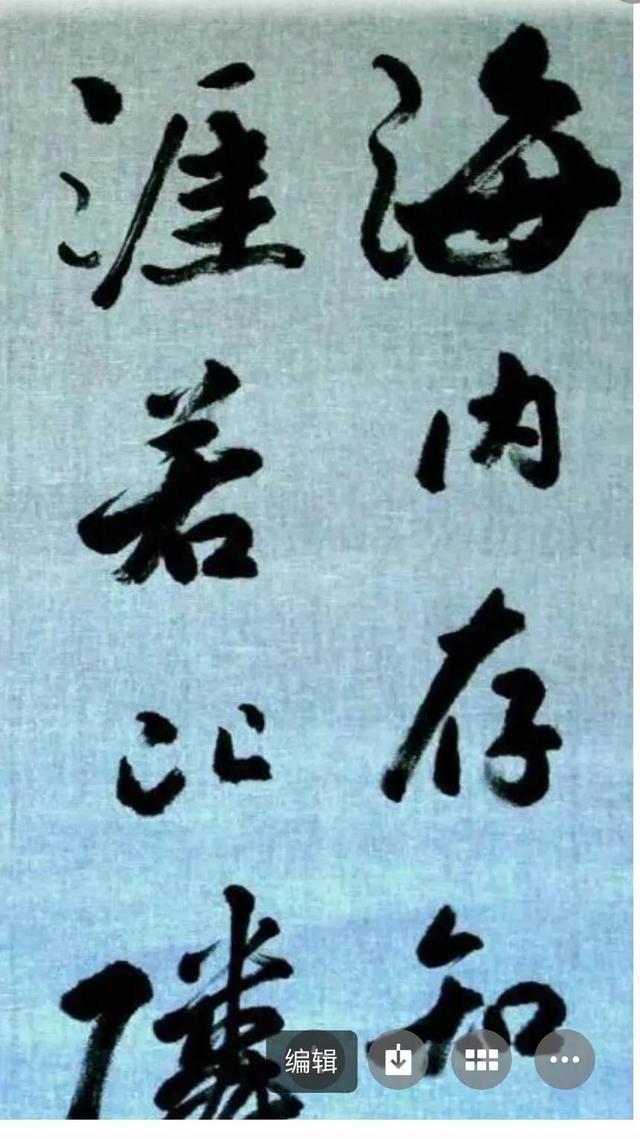 海内存知
涯若比隣
编辑